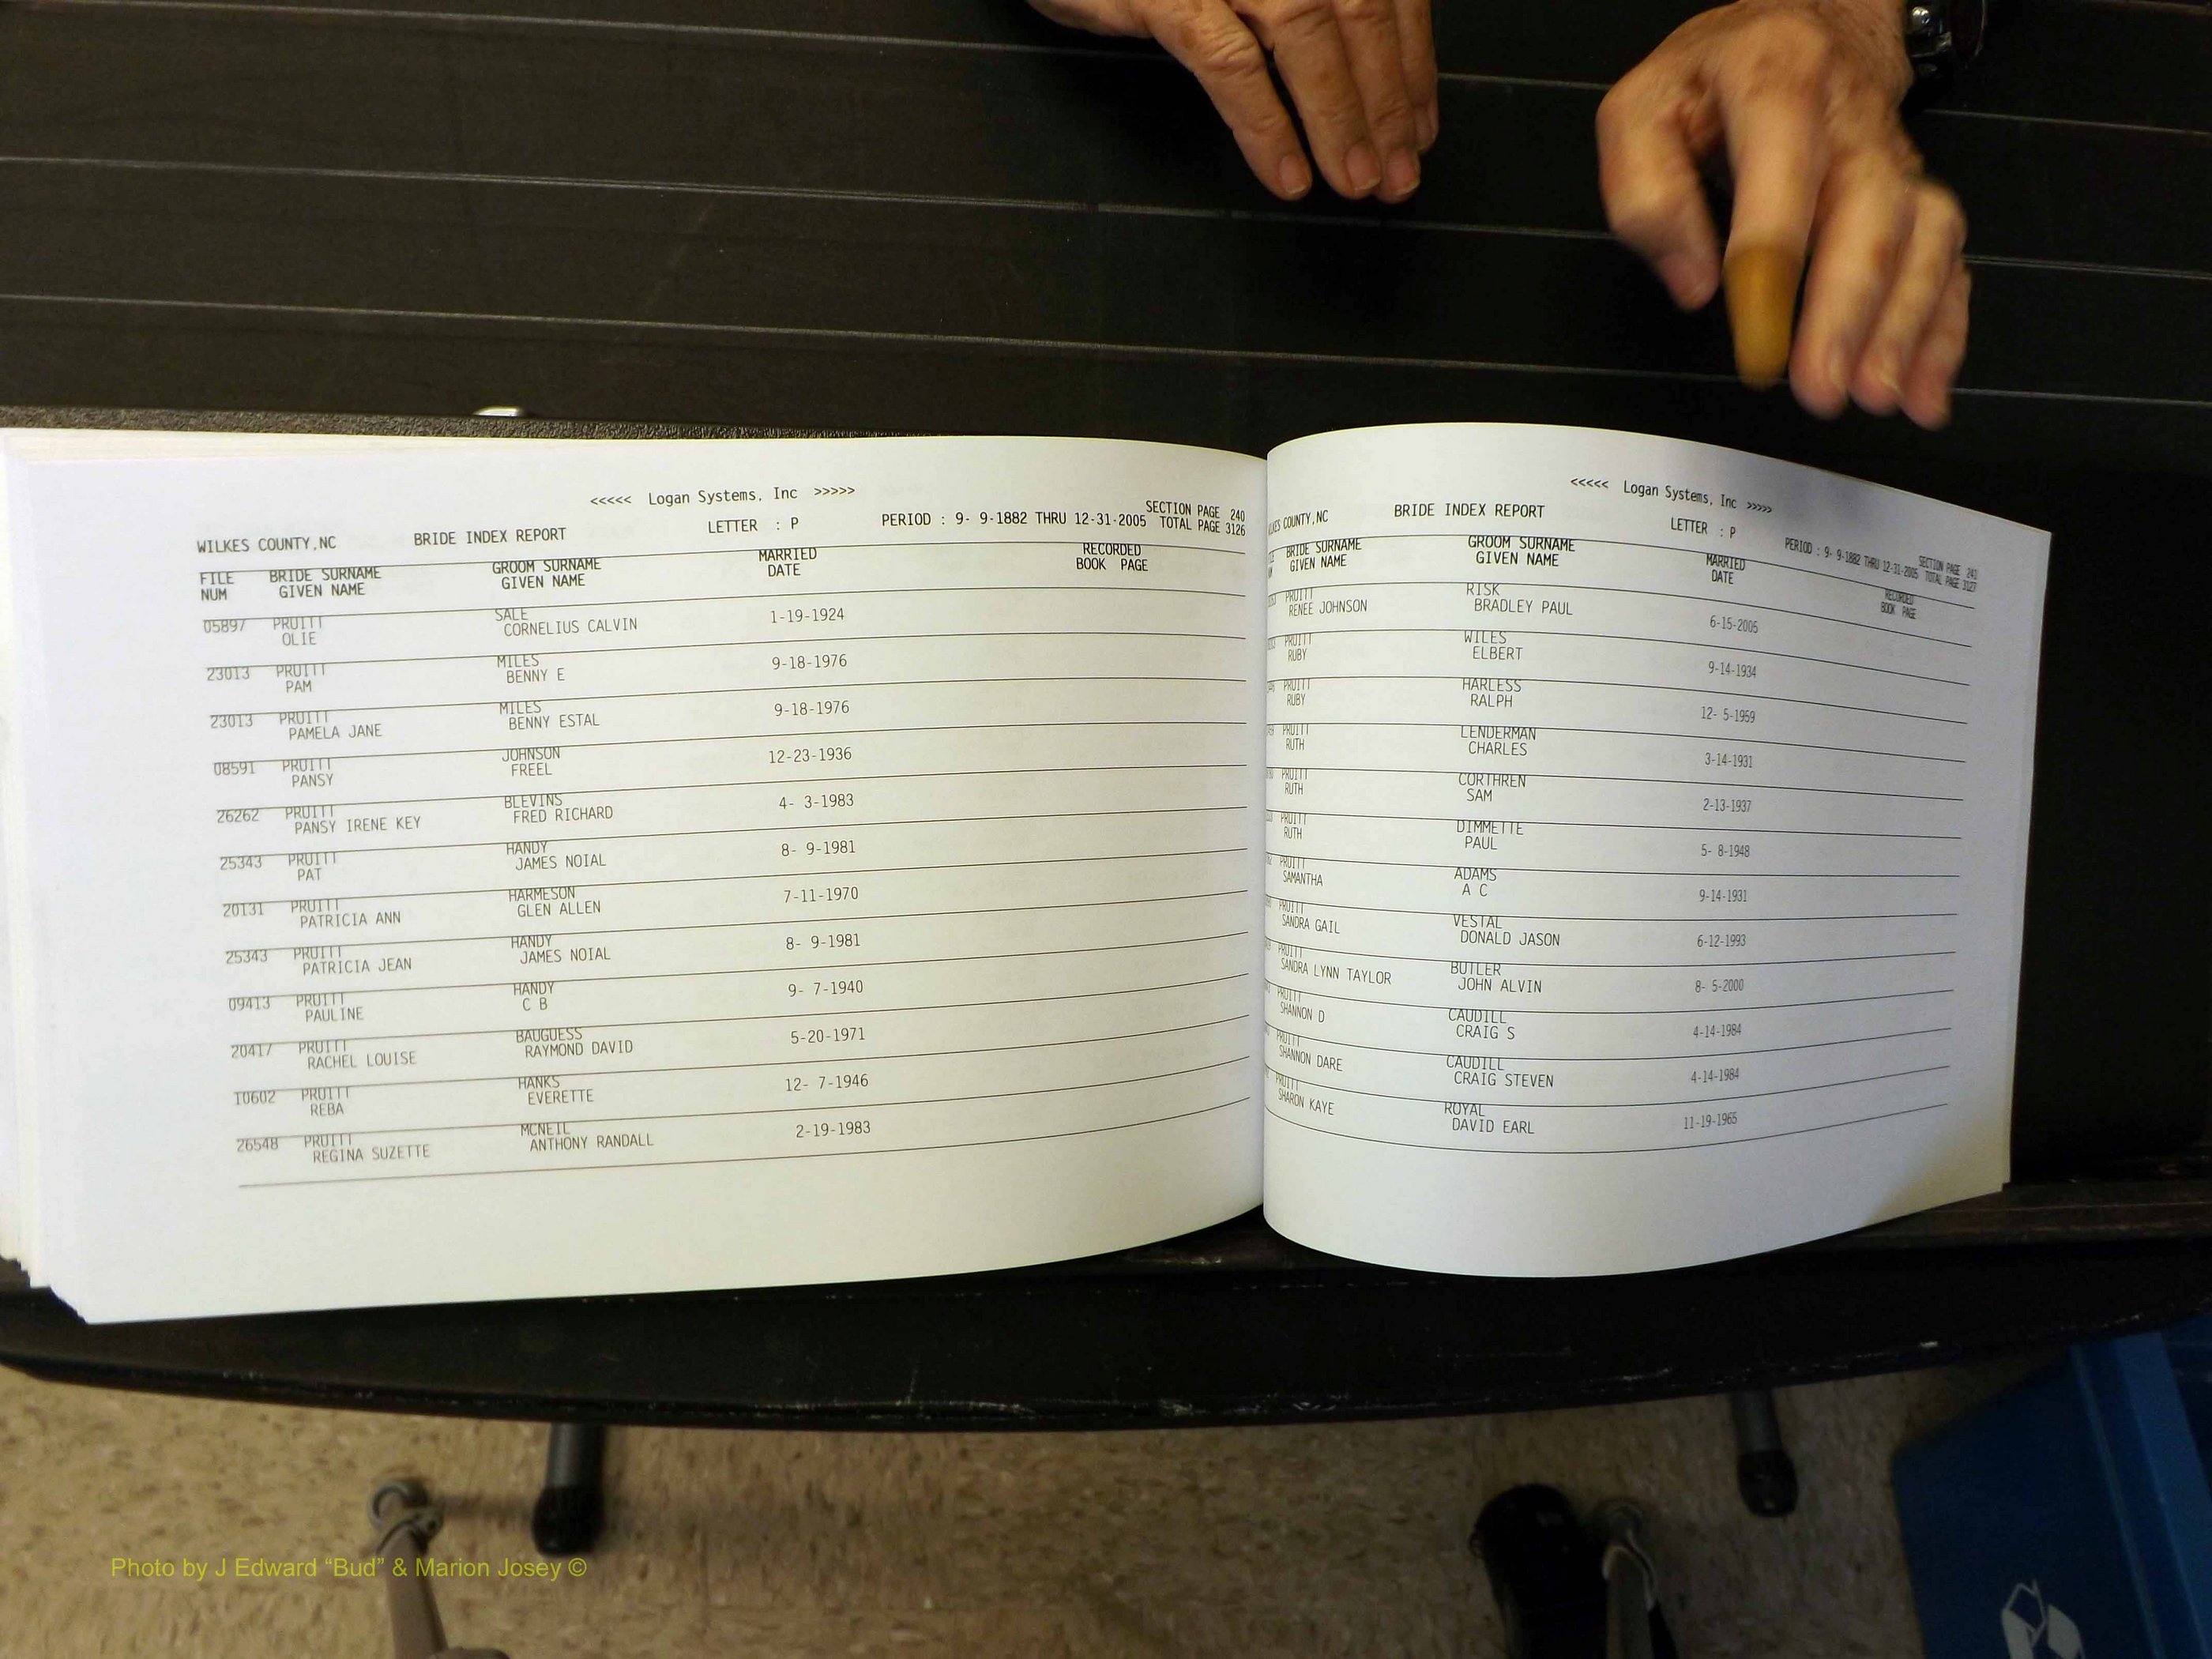 <<<<< Logan Systems, Inc >>>>>
WILKES COUNTY,NC BRIDE INDEX REPORT LETTER : P PERIOD : 9- 9-1882 THRU 12-31-2005 SECTION PAGE 240
TOTAL PAGE 3126
FILE BRIDE SURNAME GROOM SURNAME MARRIED RECORDED
NUM GIVEN NAME GIVEN NAME DATE BOOK PAGE
05897 PRUITT SALE 1-19-1924
OLIE CORNELIUS CALVIN
23013 PRUITT MILES 9-18-1976
PAM BENNY E
23013 PRUITT MILES 9-18-1976
PAMELA JANE BENNY ESTAL
08591 PRUITT JOHNSON 12-23-1936
PANSY FREEL
26262 PRUITT BLEVINS 4- 3-1983
PANSY IRENE KEY FRED RICHARD
25343 PRUITT HANDY 8- 9-1981
PAT JAMES NOIAL
20131 PRUITT HARMESON 7-11-1970
PATRICIA ANN GLEN ALLEN
25343 PRUITT HANDY 8- 9-1981
PATRICIA JEAN JAMES NOIAL
09413 PRUITT HANDY 9- 7-1940
PAULINE C B
20417 PRUITT BAUGUESS 5-20-1971
RACHEL LOUISE RAYMOND DAVID
10602 PRUITT HANKS 12- 7-1946
REBA EVERETTE
26548 PRUITT MCNEIL 2-19-1983
REGINA SUZETTE ANTHONY RANDALL
<<<<< Logan Systems, Inc >>>>>
COUNTY,NC BRIDE INDEX REPORT LETTER : P PERIOD : 9- 9-1882 THRU 12-31-2005 SECTION PAGE 241
TOTAL PAGE 3127
BRIDE SURNAME GROOM SURNAME MARRIED RECORDED
GIVEN NAME GIVEN NAME DATE BOOK PAGE
PRUITT RISK 6-15-2005
RENEE JOHNSON BRADLEY PAUL
PRUITT WILES 9-14-1934
RUBY ELBERT
PRUITT HARLESS 12- 5-1959
RUBY RALPH
PRUITT LENDERMAN 3-14-1931
RUTH CHARLES
PRUITT CORTHREN 2-13-1937
RUTH SAM
PRUITT DIMMETTE 5- 8-1948
RUTH PAUL
PRUITT ADAMS 9-14-1931
SAMANTHA A C
PRUITT VESTAL 6-12-1993
SANDRA GAIL DONALD JASON
PRUITT BUTLER 8- 5-2000
SANDRA LYNN TAYLOR JOHN ALVIN
PRUITT CAUDILL 4-14-1984
SHANNON D CRAIG S
PRUITT CAUDILL 4-14-1984
SHANNON DARE CRAIG STEVEN
PRUITT ROYAL 11-19-1965
SHARON KAYE DAVID EARL
Photo by J Edward “Bud” & Marion Josey ©